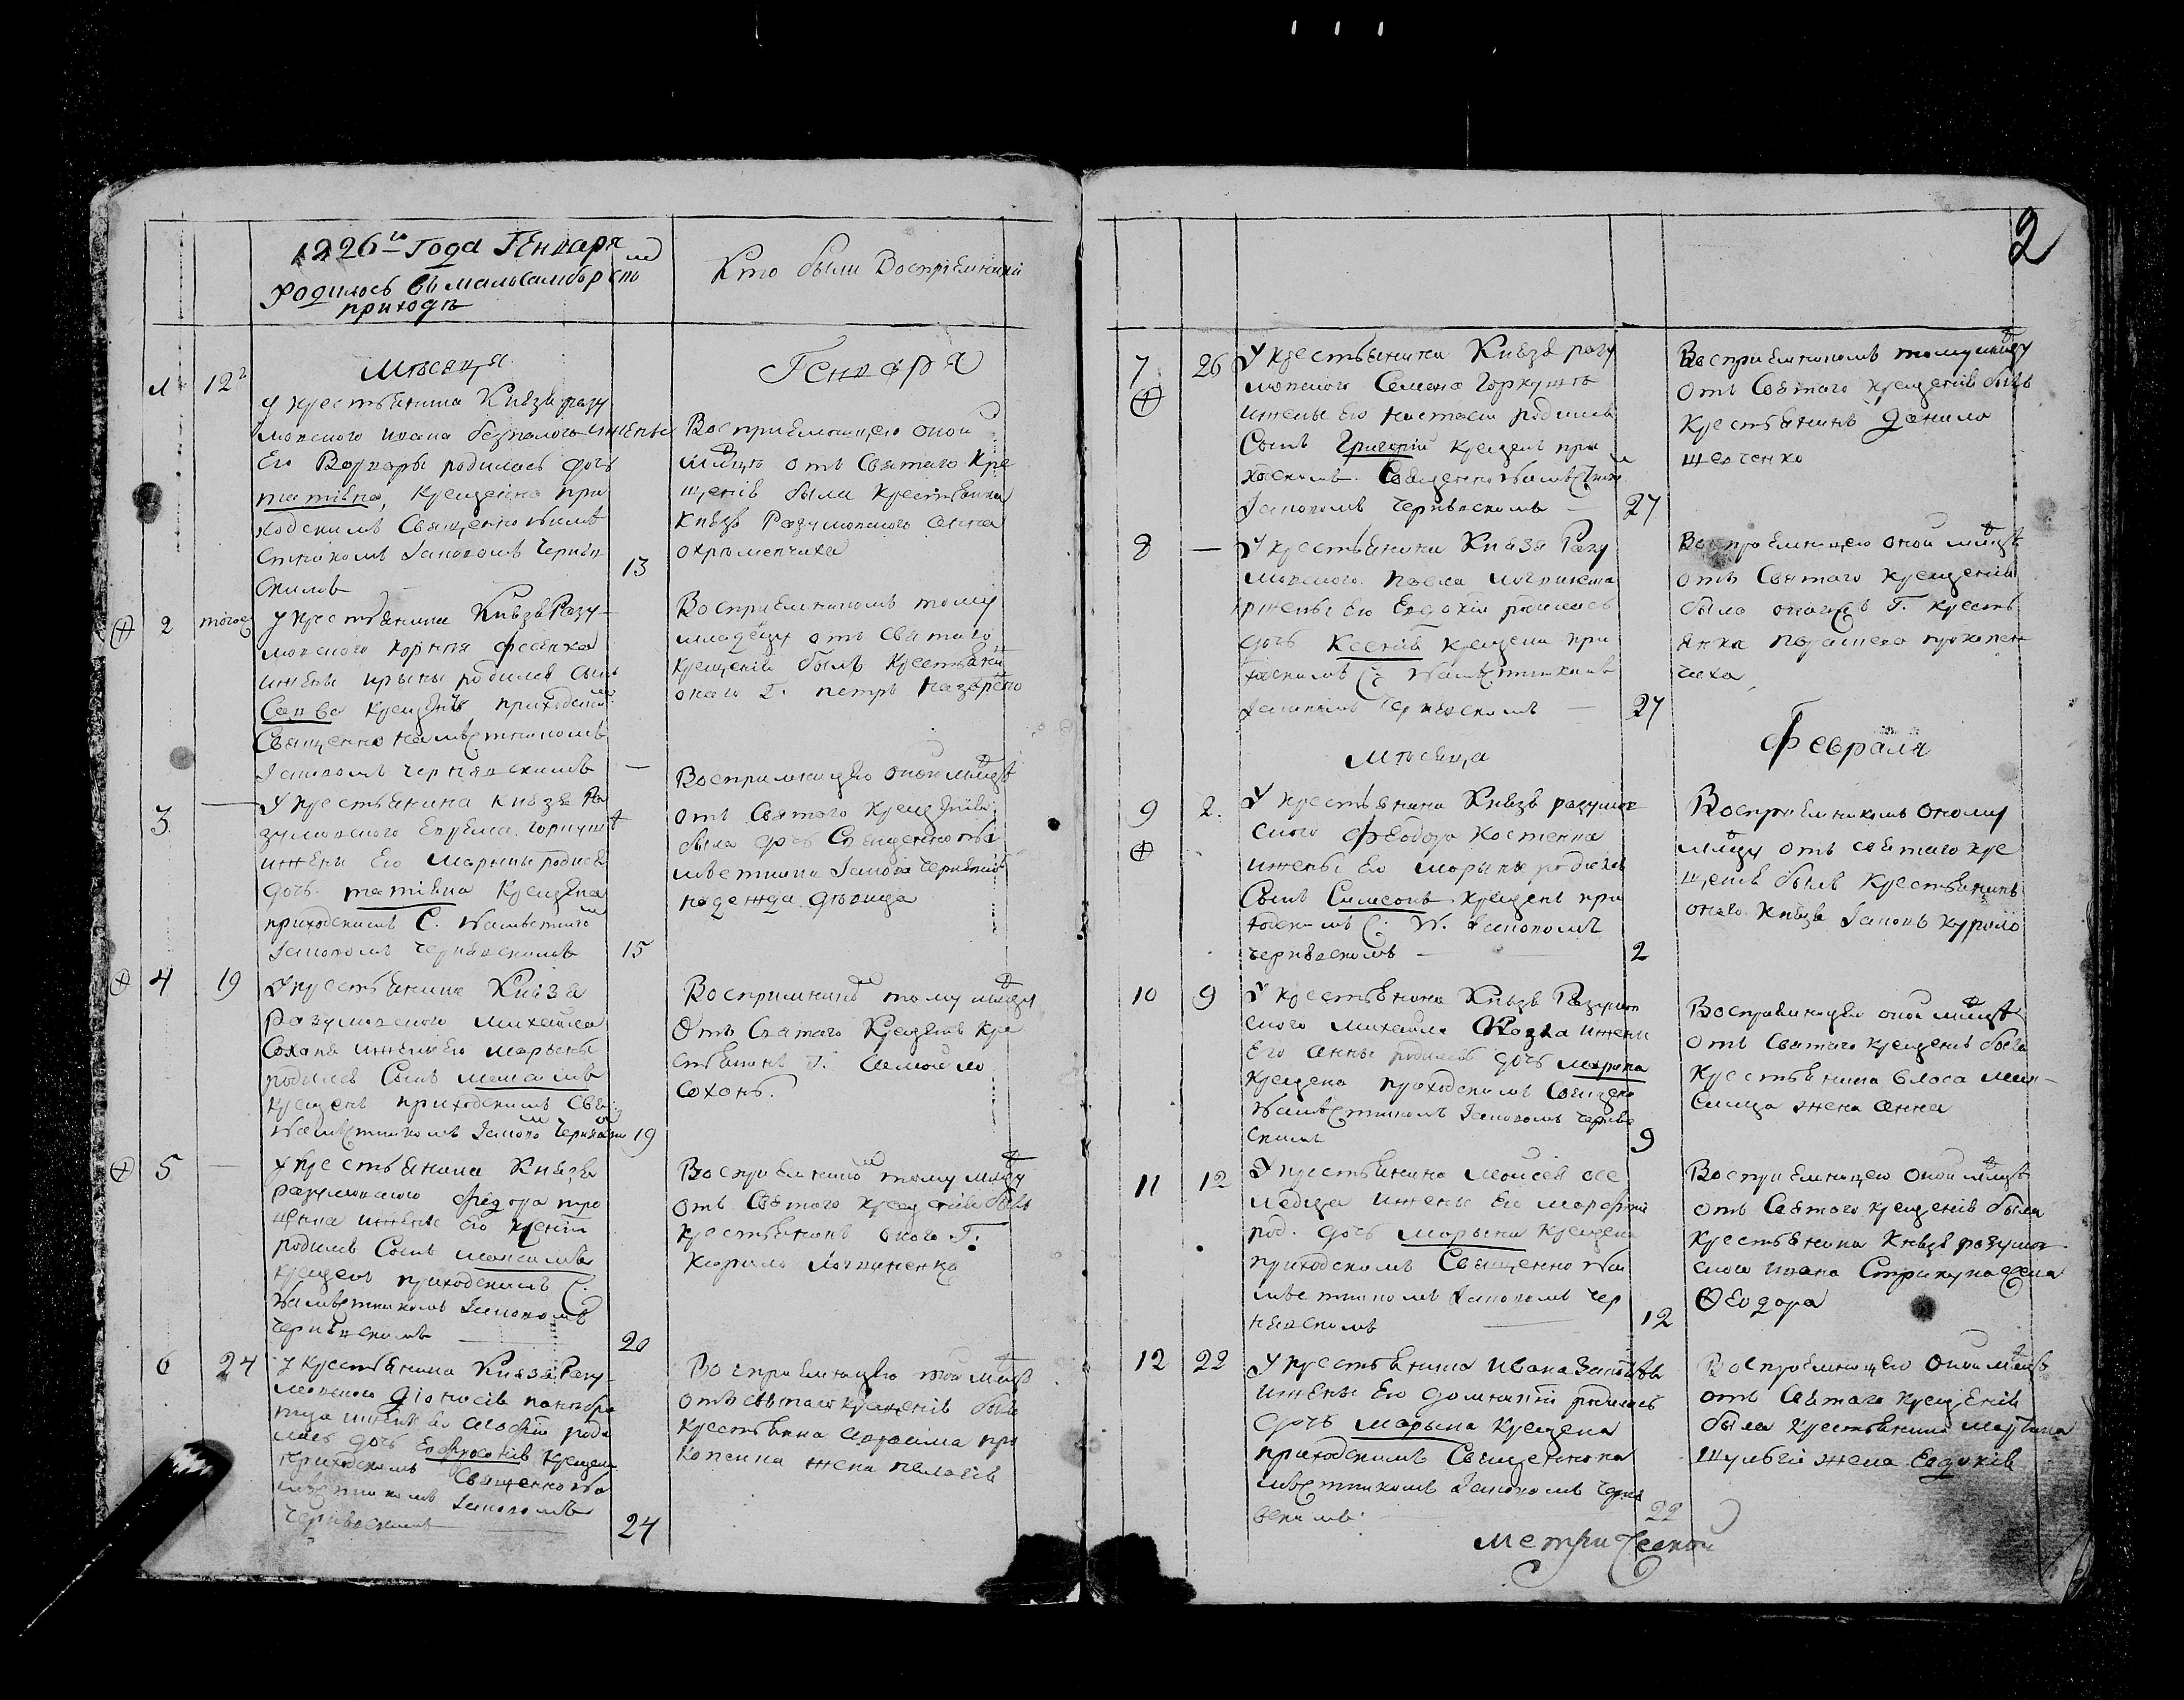 1826го Года Генваря
Родилось въ малосамборском
приходѣ
Кто были Воспріемники
Мѣсяца
Генваря
1 12
у крестьянина Князя разу
мовского ивана безпалого и жены
Его Варвары родилась дочь
татіяна, крещенна при
ходскимъ Священнонамѣ
стникомъ Іаковомъ Черняв
скимъ
13
Воспріемницею оной
мл҃дцю отъ Святаго Кре
щенія была крестьянка
Князя Разумовского анна
охрѣменчиха
2 тогоже
у крестьянина Князя Разу-
мовского корнія
и жены ирыны родился сынъ
Савва крещенъ приходским
Священнонамѣстникомъ
Іаковомъ чернявскимъ —
Воспріемникомъ тому
младенцу отъ святаго
крещенія былъ крестьянин
оного Г. петръ назаренко
3 —
У крестьянина князя Ра
зумовского Ефрема горкуши
и жены Его Марыны родися
дочь татіяна крещена
приходскимъ С. Намѣстнико
Іаковомъ чернявскимъ
15
Воспріемницею оной мл҃дцѣ
отъ Святаго крещенія
была дочь Священнона
мѣстника Іакова чернявск
надежда дѣвица
4 19
У крестьянина Князя
Разумовского Михаила
Сохана и жены Его марыны
родился Сынъ максимъ
крещенъ приходскимъ Свящ
Намѣстникомъ Іаково Чернявски
19
Воспріемникъ тому мл҃дцу
Отъ Святаго Крещенія кре
стьянинъ Г. самойло
Сохань.
5 —
У крестьянина Князя
разумовского Федора про
ценка и жены Его ксеніи
родился Сынъ максимъ
крещенъ приходскимъ С.
Намѣстникомъ Іаковомъ
чернявскимъ
20
Воспріемнико тому мл҃дцу
отъ Святого крещенія былъ
крестьянинъ оного Г.
Кирило Логвиненко
6 24
У крестьянина Князя Разу-
мовского Діонисія
и жены Его Агафіи роди
лась дочь Ефросинія крещена
приходскимъ Священнона
мѣстникомъ Іаковомъ
Чернявскимъ
24
Воспріемницею той мл҃дцѣ
отъ святаго крещенія была
крестьянина аврама про
копенка жена пелагія
2
7 26
У крестьянина Князя разу
мовского Семена Горкуши
и жены Его настасіи родился
Сынъ Григорій крещенъ при
ходскимъ Священнонамѣстни
Іаковомъ чернявскимъ —
27
Воспріемникомъ тому мл҃дцу
отъ Святаго крещенія былъ
крестьянинъ данило
шевченко
8 —
У крестьянина Князя Разу
мовского павла логвиненка
и жены Его Евдокіи родилась
дочь Ксенія крещена при
ходскимъ С: Намѣстником
Іаковомъ чернявскимъ —
27
Воспріемницею оной мл҃дцѣ
отъ Святаго крещенія
была онагожъ Г. кресть
янка параскева прокопен
чиха
Мѣсяца
Февраля
9 2.
У крестьянина Князя разумов
ского Феодора костенка
и жены Его марыны родился
Сынъ Симеонъ крещенъ при
ходскимъ С: Н. Іаковомъ
чернявскимъ —
2
Воспріемникомъ оному
мл҃дцу отъ святаго кре
щенія былъ крестьянинъ
оного князя Іаковъ курило
10 9
У крестьянина Князя Разумов
ского михаила Козла и жены
Его анны родилась дочь марина
крещена приходскимъ Священно
Намѣстникомъ Іаковомъ черняв
скимъ
9
Воспріемницею оной мл҃дцѣ
отъ Святаго крещенія была
крестьянина власа
жена анна
11 12
У крестьянина Моисея осе
ледца и жены Его марфы
род. дочь марына крещена
приходскимъ Священнона
мѣстникомъ Іаковомъ чер
нявскимъ
12
Воспріемницею оной мл҃дцѣ
отъ Святаго крещенія была
крестьянина князя разумов
ского ивана Стрикуна жена
Ѳеодора
12 22
У крестьянина ивана
и жены Его домникіи родилась
дочь марына крещена
приходскимъ Священнона
мѣстникомъ Іаковомъ черня
вскимъ.
22
Воспріемницею оной мл҃дцѣ
отъ Святаго крещенія
была крестьянина мартина
Шульги жена Евдокія
Метрической